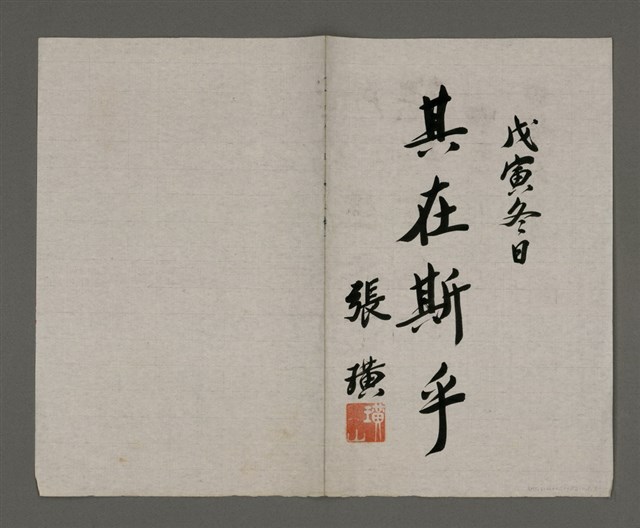 戊寅冬日
其在斯乎
張璜